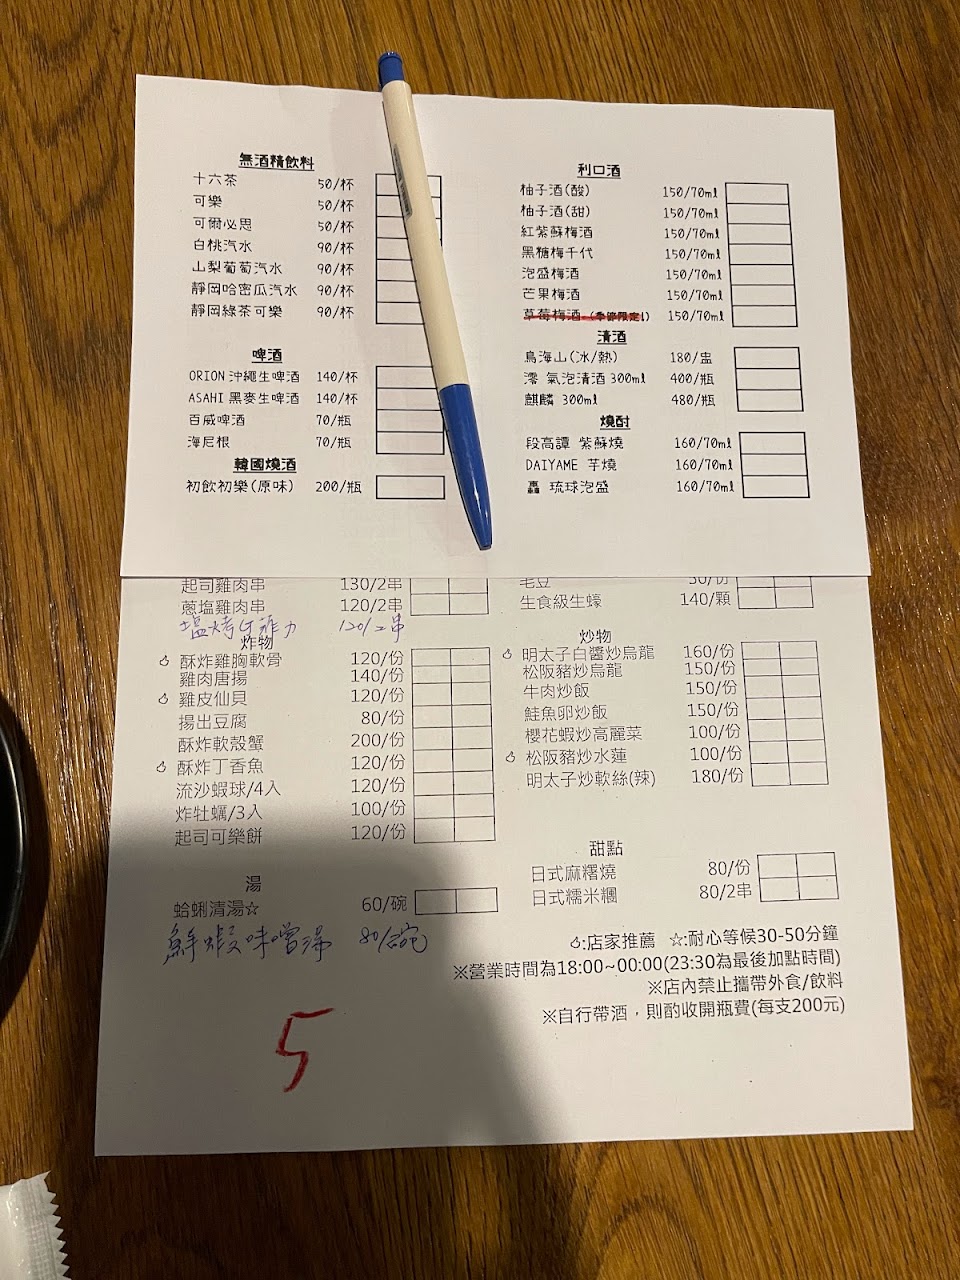 無酒精飲料
十六茶 50/杯
可樂 50/杯
可爾必思 50/杯
白桃汽水 90/杯
山梨葡萄汽水 90/杯
靜岡哈密瓜汽水 90/杯
靜岡綠茶可樂 90/杯
啤酒
ORION 沖繩生啤酒 140/杯
ASAHI 黑麥生啤酒 140/杯
百威啤酒 70/瓶
海尼根 70/瓶
韓國燒酒
初飲初樂(原味) 200/瓶
利口酒
柚子酒(酸) 150/70ml
柚子酒(甜) 150/70ml
紅紫蘇梅酒 150/70ml
黑糖梅千代 150/70ml
泡盛梅酒 150/70ml
芒果梅酒 150/70ml
草莓梅酒 (季節限定!) 150/70ml
清酒
鳥海山(冰/熱) 180/盅
澪 氣泡清酒 300ml 400/瓶
麒麟 300ml 480/瓶
燒酎
段高譚 紫蘇燒 160/70ml
DAIYAME 芋燒 160/70ml
轟 琉球泡盛 160/70ml
起司雞肉串 130/2串
蔥塩雞肉串 120/2串
塩烤牛菲力 120/2串
炸物
酥炸雞胸軟骨 120/份
雞肉唐揚 140/份
雞皮仙貝 120/份
揚出豆腐 80/份
酥炸軟殼蟹 200/份
酥炸丁香魚 120/份
流沙蝦球/4入 120/份
炸牡蠣/3入 100/份
起司可樂餅 120/份
湯
蛤蜊清湯☆ 60/碗
鮮蝦味噌湯 80/碗
5
毛豆 50/份
生食級生蠔 140/顆
炒物
明太子白醬炒烏龍 160/份
松阪豬炒烏龍 150/份
牛肉炒飯 150/份
鮭魚卵炒飯 150/份
櫻花蝦炒高麗菜 100/份
松阪豬炒水蓮 100/份
明太子炒軟絲(辣) 180/份
甜點
日式麻糬燒 80/份
日式糯米糰 80/2串
:店家推薦 ☆:耐心等候30-50分鐘
※營業時間為18:00~00:00(23:30為最後加點時間)
※店內禁止攜帶外食/飲料
※自行帶酒，則酌收開瓶費(每支200元)